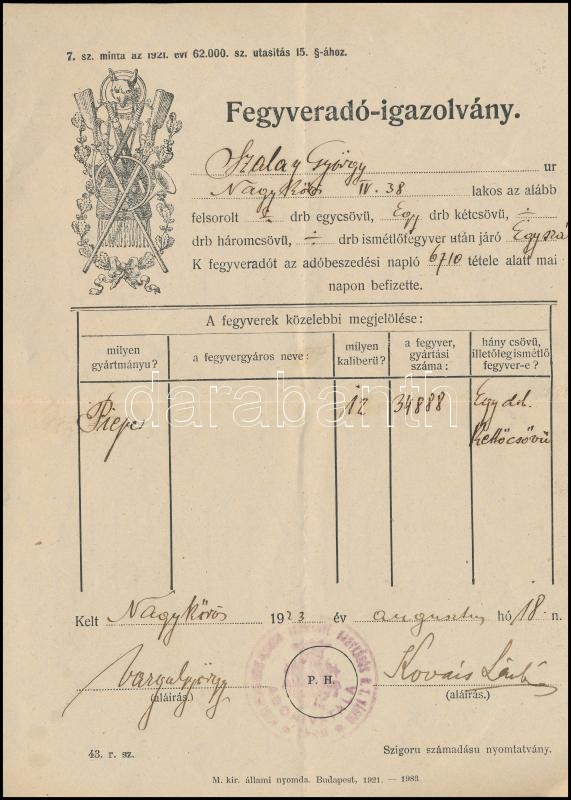 7. sz. minta az 1921. évi 62.000. sz. utasitás 15. §-ához.
Fegyveradó-igazolvány.
Szalay György ur
Nagykőrös IV. 38 lakos az alább
felsorolt ÷ drb egycsövü, Egy drb kétcsövü, ÷
drb háromcsövü, ÷ drb ismétlőfegyver után járó Egyszá
K fegyveradót az adóbeszedési napló 6710 tétele alatt mai
napon befizette.
A fegyverek közelebbi megjelölése:
milyen gyártmányu?
a fegyvergyáros neve:
milyen kaliberü?
a fegyver, gyártási száma:
hány csövü, illetőleg ismétlő fegyver-e?
12 34888 Egy drb.
Kettőcsövü
darabanth
Kelt Nagykőrös 1923 év augusztus hó 18. n.
Varga György Kovács
P. H.
(aláirás.) (aláirás.)
43. r. sz. Szigoru számadásu nyomtatvány.
M. kir. állami nyomda. Budapest, 1921. — 1983.